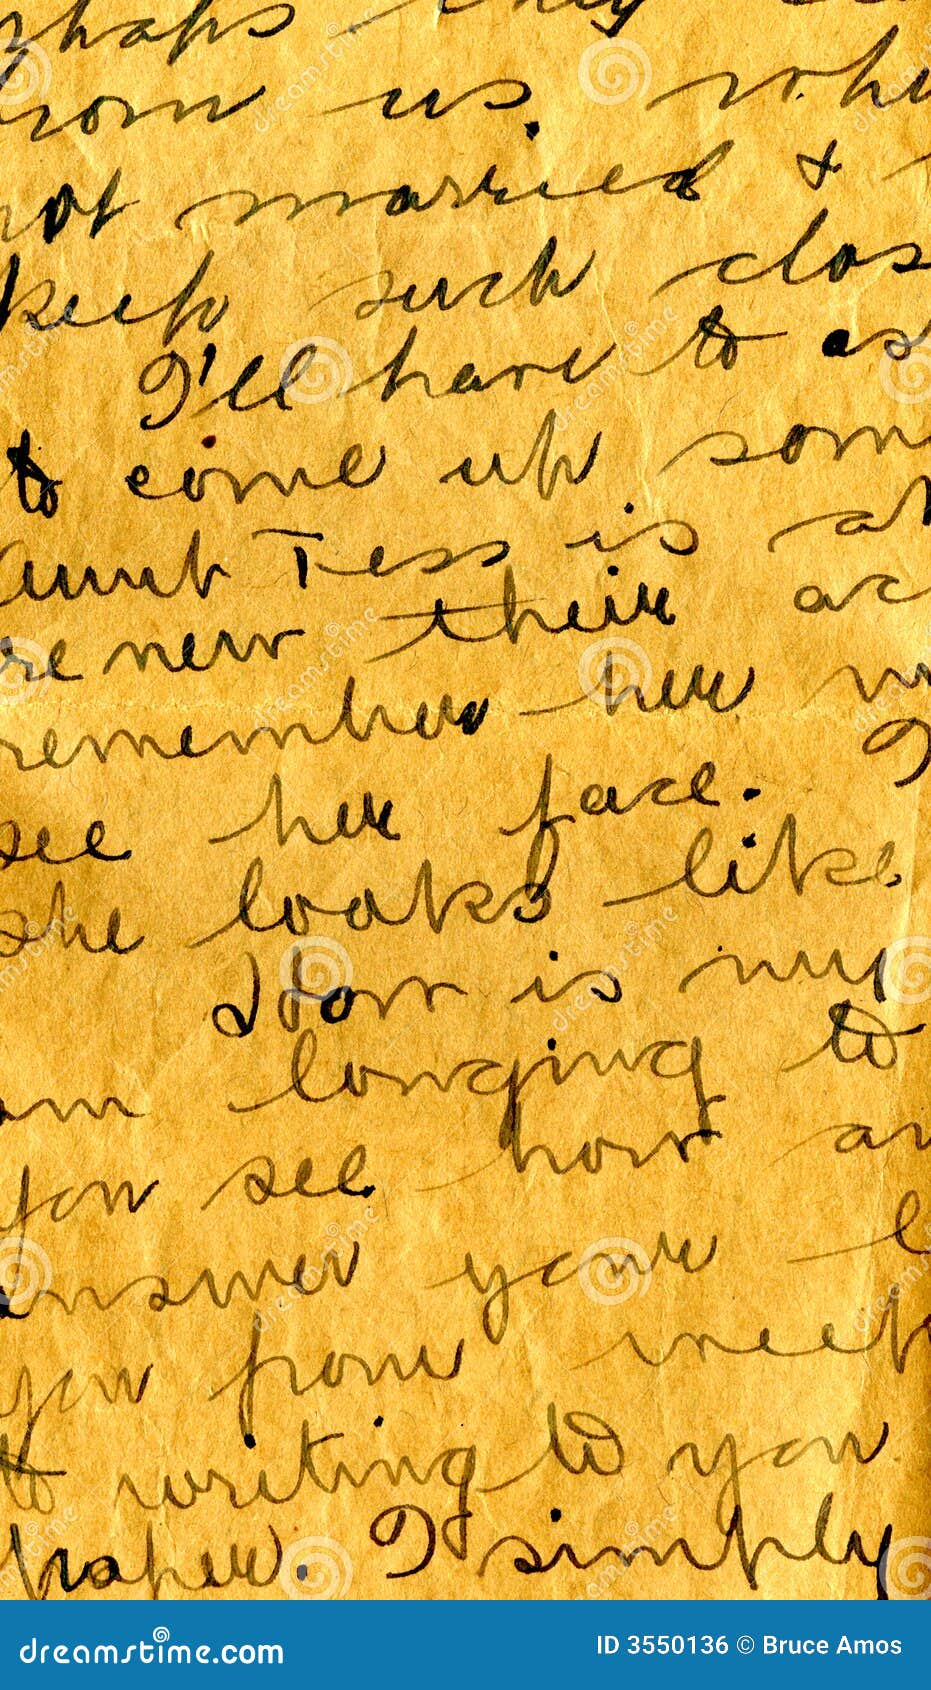 rhaps they
from us, whe
not married &
keep such clos
I'll have to as
to come up som
Aunt Tess is at
renew their ac
remember her
see her face. I
she looks like
How is my
am longing to
you see how an
answer your l
you from week
to writing to you
paper. I simply
dreamstime.com
ID 3550136 © Bruce Amos